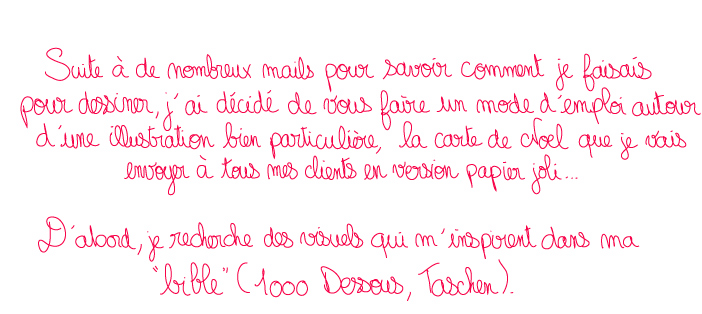 Suite à de nombreux mails pour savoir comment je faisais
pour dessiner, j'ai décidé de vous faire un mode d'emploi autour
d'une illustration bien particulière, la carte de Noel que je vais
envoyer à tous mes clients en version papier joli...
D'abord, je recherche des visuels qui m'inspirent dans ma
"bible" (1000 Dessous, Taschen).